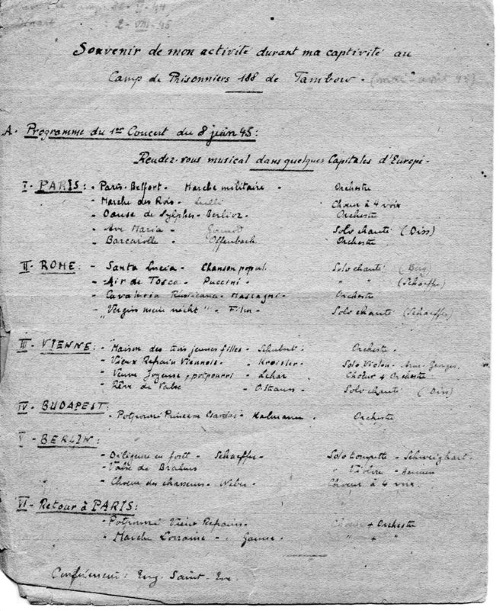 2-VIII-45
Souvenir de mon activité durant ma captivité au
Camp de Prisonniers 188 de Tambow - 45)
A. Programme du 1er Concert du 8 juin 45:
Rendez-vous musical dans quelques Capitales d'Europe -
I - PARIS: - Paris-Belfort - Marche militaire - Orchestre
- Marche des Rois - Lulli Chœur à 4 voix
- Danse de Sylphes - Berlioz - Orchestre
- Ave Maria - Gounod Solo chanté (Diss)
- Barcarolle - Offenbach Orchestre
II - ROME: - Santa Lucia - Chanson popul. Solo chanté
- Air de Tosca - Puccini - " " (Schaeffer)
- Cavaleria Rusticana - Mascagni - Orchestre
- "Vergiss mein nicht" - Film - Solo chanté (Schaeffer)
III - VIENNE: - Maison des trois jeunes filles - Schubert - Orchestre -
- Vieux Refrain Viennois - Kreisler - Solo Violon -
- Veuve Joyeuse potpourri - Lehar Chœur + Orchestre
- Rêve de Valse - O. Straus - Solo chanté (Diss)
IV - BUDAPEST: - Potpourri Princesse Czardas - Kalmann . Orchestre
V - BERLIN: - Diligence en forêt - Schaeffer - Solo trompette - Schweighart -
- Valse de Brahms " Violon -
- Chœur des chasseurs - Weber - Chœur à 4 voix
VI - Retour à PARIS:
- Potpourri Vieux Refrains - + Orchestre
- Marche Lorraine - Ganne - " "
Conférencier: Eug. Saint-